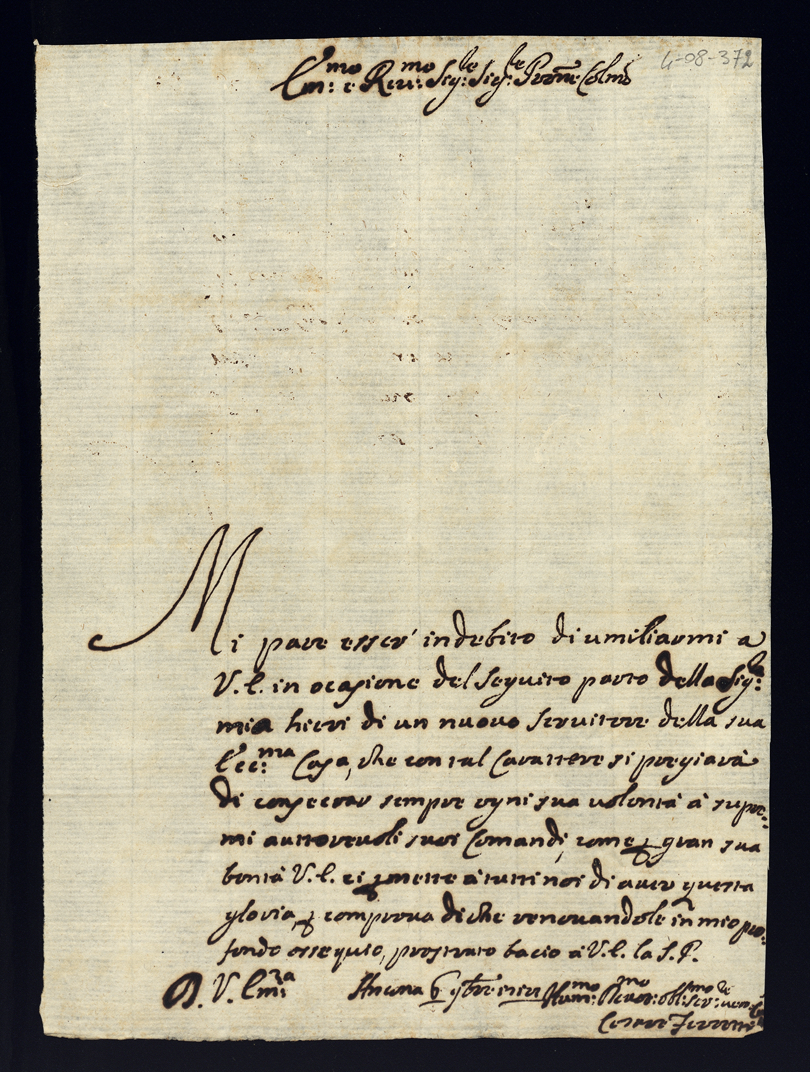 Em:mo e Rev:mo Sig:re Sig:re Prōne Colmo
4-08-372
Mi pare esser' indebito di umiliarmi a
V. E. in ocasione del seguito parto della Sig:ra
mia heeri di un nuovo servitore della sua
Ecc:ma Casa, che con tal Carattere si pregiarà
di consecrar sempre ogni sua volontà à supre-
mi auttorevoli suoi Comandi, come gran sua
bontà V. E. mette à tutti noi di aver questa
gloria, comprova di che renovandole in mio pro-
fondo ossequio, prostrato bacio à V. E. la S. P.
D. V. Em:ra Ancona 6
Hum:mo Devot: obl:mo ser:
Cesare